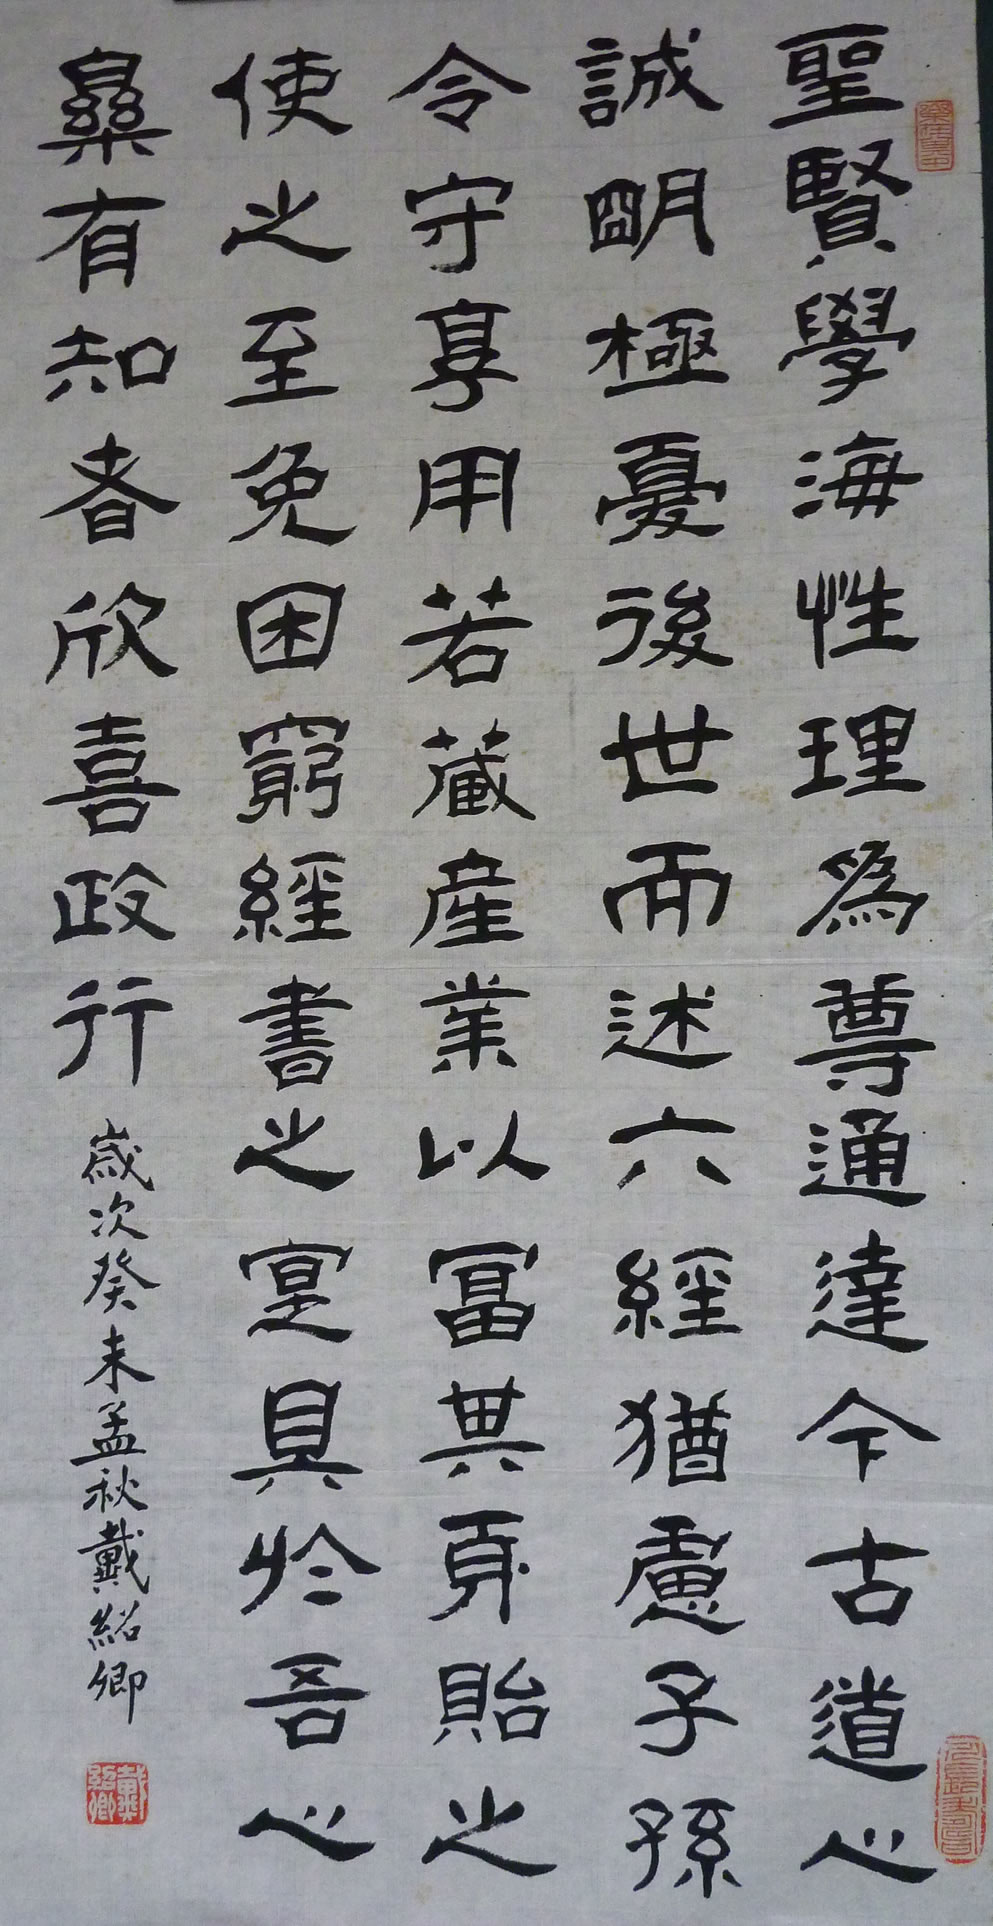 聖賢學海性理為尊通達今古道心
誠明極憂後世而述六經猶慮子孫
令守享用若蔵産業以富其身貽之
使之至免困窮經書之寔具於吾心
樂有知者欣喜政行
歲次癸未孟秋戴紹卿
戴紹卿